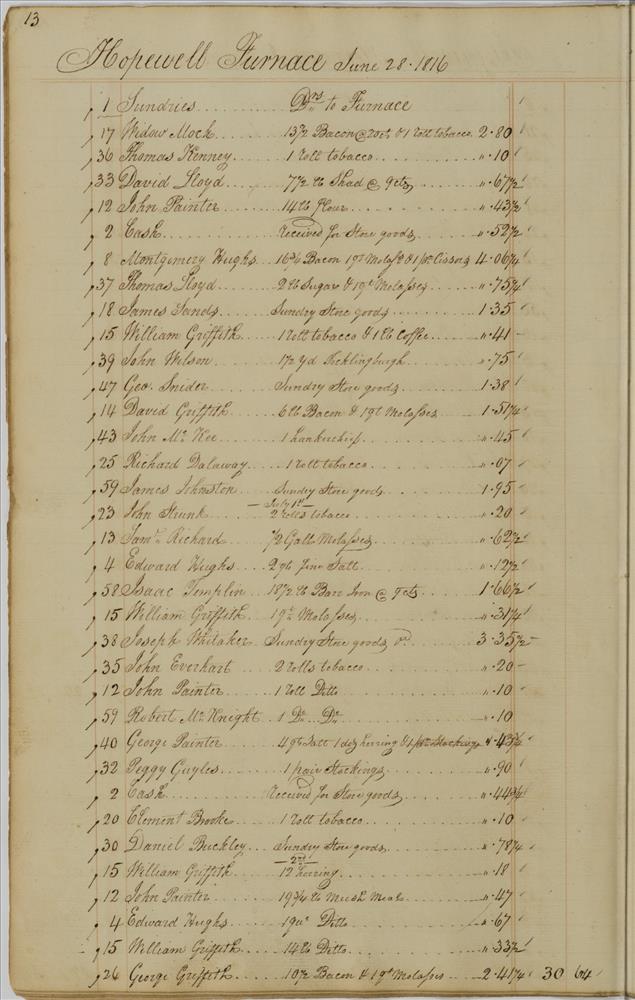 13
Hopewell Furnace June 28. 1816
1 Sundries Drs. to Furnace
17 Widow Mock 13½ Bacon @ 20ct & 1 roll tobacco 2.80
36 Thomas Kenney 1 roll tobacco " .10
33 David Lloyd 7½ lb Shad @ 9cts " .67½
12 John Painter 14 lb flour " .43½
2 Cash Received for Store goods " .52½
8 Montgomery Hughs 16¾ Bacon 1qt Molasses & 1 pr Cissors 4.06¼
37 Thomas Lloyd 2 lb Sugar & 1qt Molasses " .75¼
18 James Sands Sundry Store goods 1.35
15 William Griffith 1 roll tobacco & 1 lb Coffee " .41
39 John Wilson 1½ yd Ticklingburgh " .75
47 Geo. Snider Sundry Store goods 1.38
14 David Griffith 6 lb Bacon & 1qt Molasses 1.51¼
43 John Mc Kee 1 hankerchief " .45
25 Richard Dalaway 1 roll tobacco " .07
59 James Johnston Sundry Store goods 1.95
July 1st
23 John Strunk 2 rolls tobacco " .20
13 Saml. Richard ½ Galls Molasses " .62½
4 Edward Hughs 2 qts fine Salt " .12½
58 Isaac Templin 18½ lb Barr Iron @ 9cts 1.66½
15 William Griffith 1qt Molasses " .31¼
38 Joseph Whitaker Sundry Store goods 3.35½
35 John Everhart 2 rolls tobacco " .20
12 John Painter 1 roll Ditto " .10
59 Robert Mc Knight 1 Do. Do. " .10
40 George Painter 4 qt Salt 1 doz herring & 1 Stockings .43¾
32 Peggy Guyles 1 pair Stockings " .90
2 Cash Received for Store goods " .44¾
20 Clement Brooke 1 roll tobacco " .10
30 Daniel Buckley Sundry Store goods " .78¼
2nd
15 William Griffith 12 herring " .18
12 John Painter 19¾ lb Mush Meal " .47
4 Edward Hughs 1 Ditto " .67
15 William Griffith 14 lb Ditto " .33½
26 George Griffith 10½ Bacon & 1qt Molasses 2.41¼ 30 64